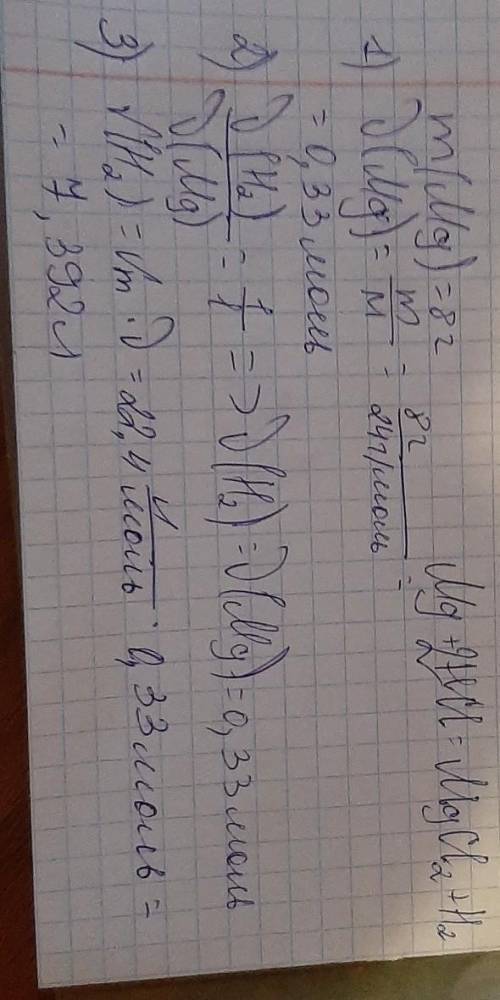 m(Mg) = 8г   Mg + 2HCl = MgCl₂ + H₂
1) ν(Mg) = m/M = 8г/24г/моль =
= 0,33 моль
2) ν(H₂)/ν(Mg) = 1/1 => ν(H₂) = ν(Mg) = 0,33 моль
3) V(H₂) = Vm · ν = 22,4 л/моль · 0,33 моль =
= 7,392 л